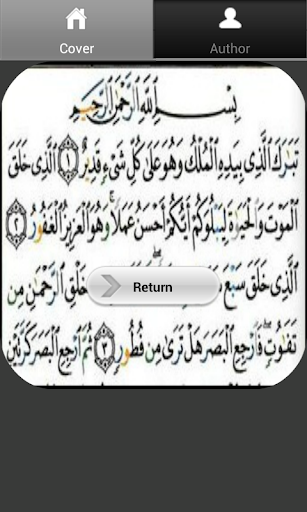 Cover
Author
بِسْمِ اللَّهِ الرَّحْمَٰنِ الرَّحِيمِ
تَبَارَكَ الَّذِي بِيَدِهِ الْمُلْكُ وَهُوَ عَلَىٰ كُلِّ شَيْءٍ قَدِيرٌ ١ الَّذِي خَلَقَ
الْمَوْتَ وَالْحَيَاةَ لِيَبْلُوَكُمْ أَيُّكُمْ أَحْسَنُ عَمَلًا وَهُوَ الْعَزِيزُ الْغَفُورُ ٢
الَّذِي خَلَقَ سَبْعَ خَلْقِ الرَّحْمَٰنِ مِن
Return
تَفَاوُتٍ فَارْجِعِ الْبَصَرَ هَلْ تَرَىٰ مِن فُطُورٍ ٣ ثُمَّ ارْجِعِ الْبَصَرَ كَرَّتَيْنِ